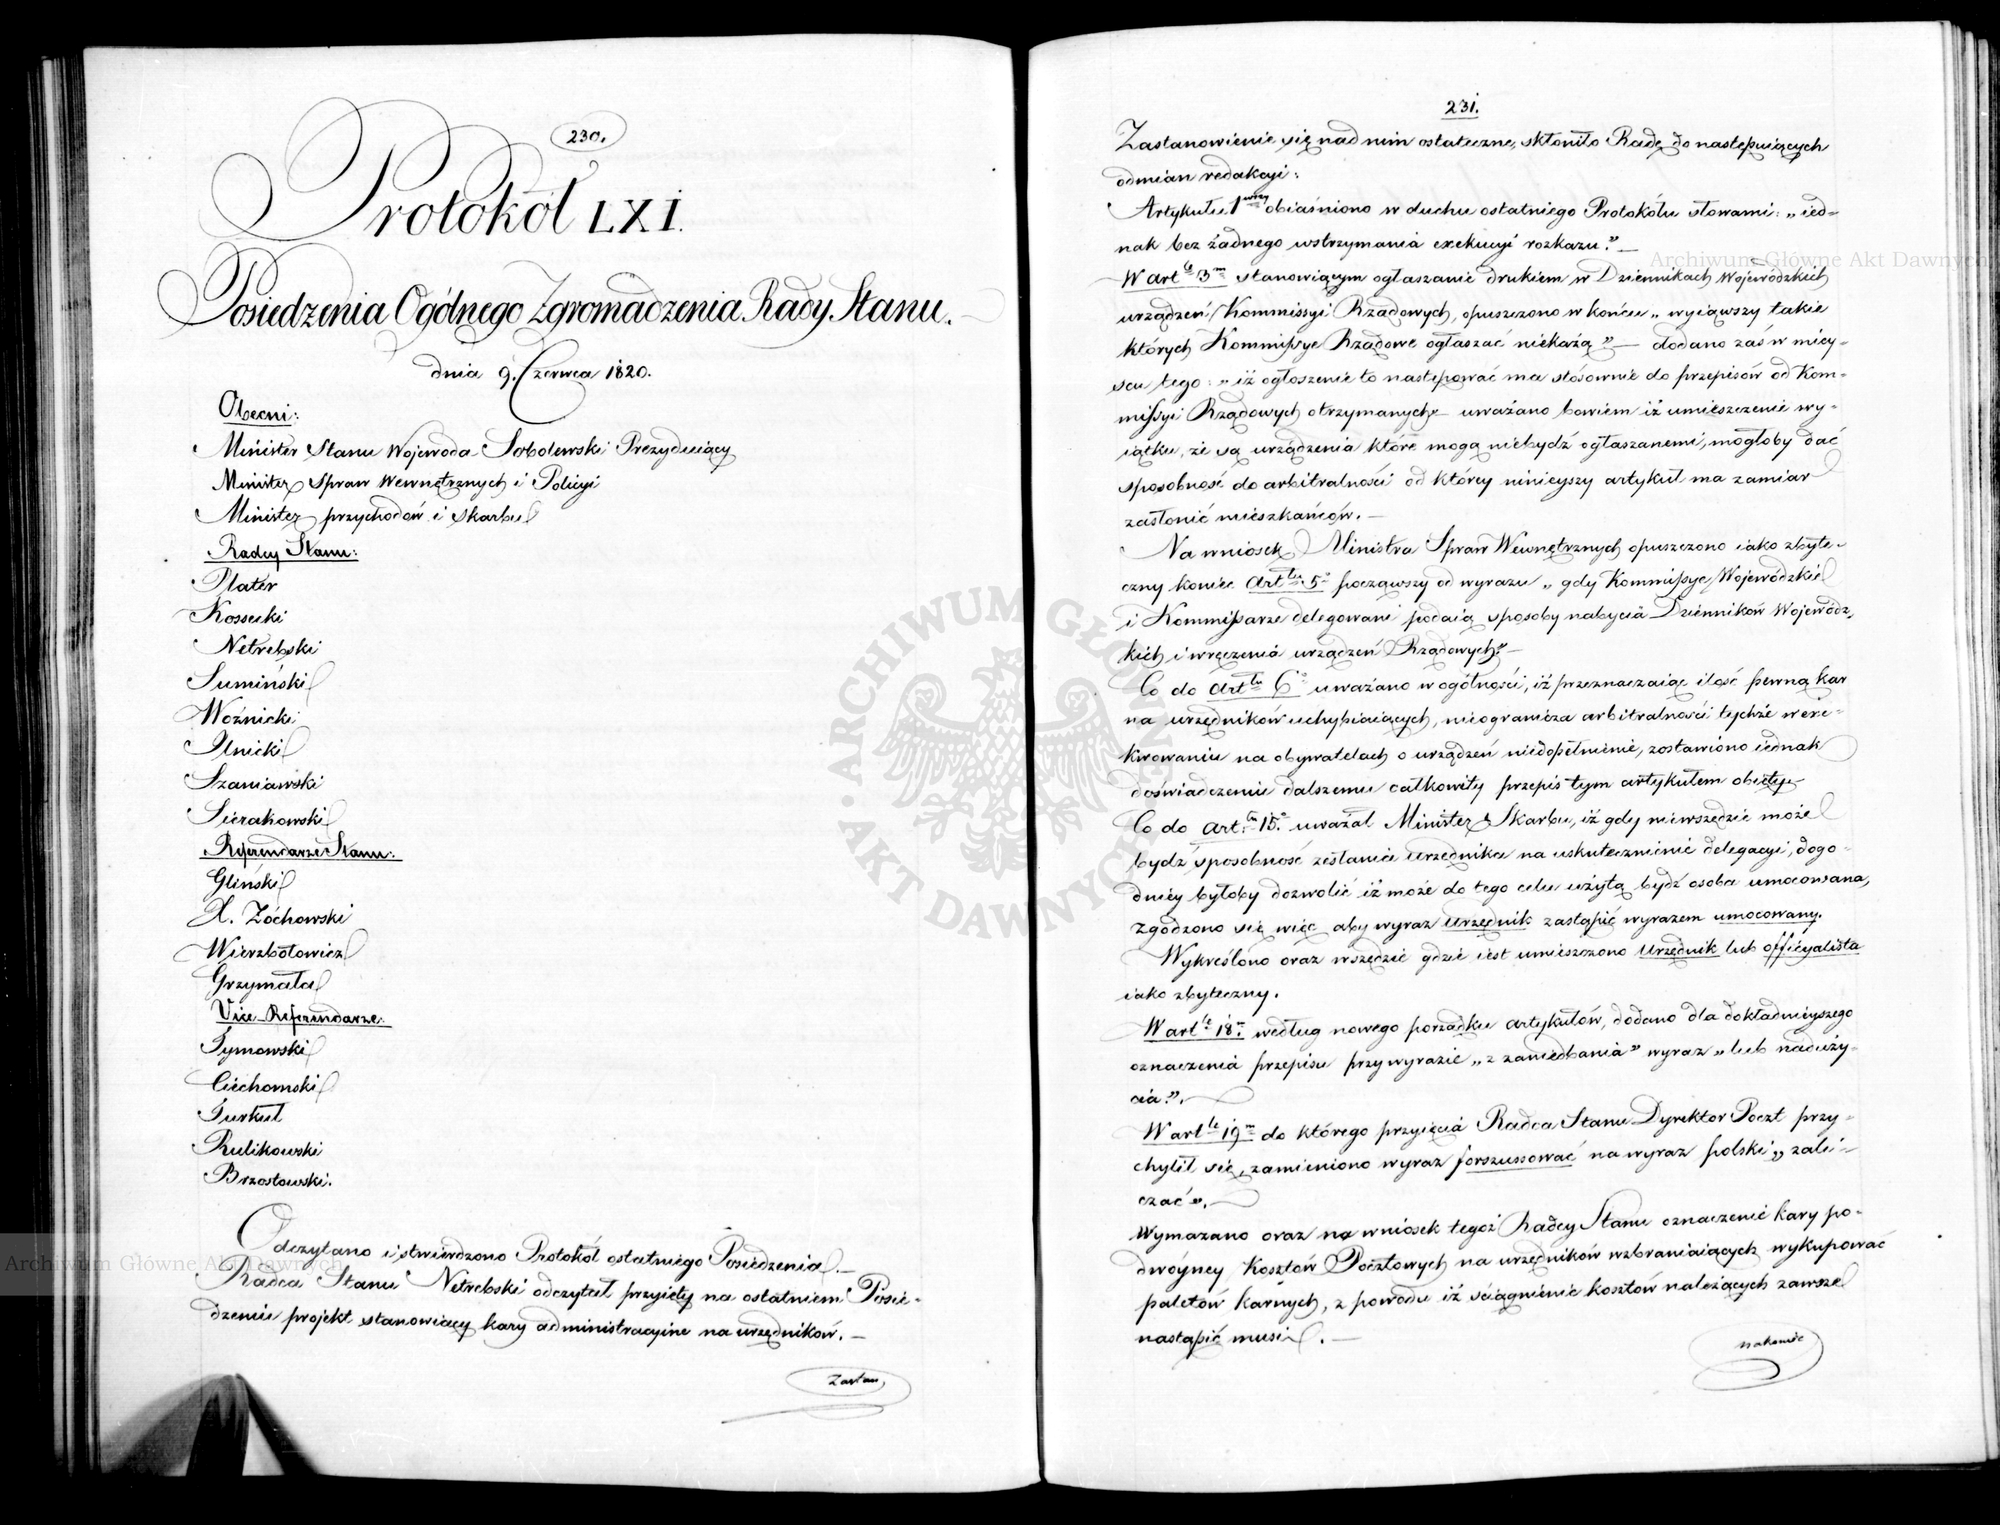 230.
Protokół LXI.
Posiedzenia Ogólnego Zgromadzenia Rady Stanu.
dnia 9. Czerwca 1820.
Obecni:
Minister Stanu Wojewoda Sobolewski Prezyduiący
Minister Spraw Wewnętrznych i Policyi
Minister przychodów i skarbu
Radcy Stanu:
Plater
Kossecki
Netrebski
Sumiński
Woźnicki
Ilnicki
Szaniawski
Sierakowski
Referendarze Stanu:
Gliński
X. Zóchowski
Wierzbołowicz
Grzymała
Vice-Referendarze.
Tymowski
Ciechomski
Turkuł
Rulikowski
Brzostowski.
Odczytano i stwierdzono Protokół ostatniego Posiedzenia.—
Radca Stanu Netrebski odczytał przyięty na ostatniem Posie-
dzeniu projekt stanowiący kary administracyine na urzędników.—
Zastan,
231.
Zastanowienie się nad nim ostateczne, skłoniło Radę do następuiących
odmian redakcyi:
Artykułu 1wszy obiaśniono w duchu ostatniego Protokółu słowami: „ied-
nak bez żadnego wstrzymania exekucyi rozkazu."—
W artle 3m stanowiącym ogłaszanie drukiem w Dziennikach Wojewódzkich
urządzeń Kommissyi Rządowych, opuszczono w końcu „wyiąwszy takie
których Kommissye Rządowe ogłaszać niekażą"— dodano zaś w miey-
scu tego: „iż ogłoszenie to następować ma stósownie do przepisów od Kom-
missyi Rządowych otrzymanych" uważano bowiem iż umieszczenie wy-
iątku, że są urządzenia które mogą niebydź ogłaszanemi, mogłoby dać
sposobność do arbitralności od którey ninieyszy artykuł ma zamiar
zasłonić mieszkańców.—
Na wniosek Ministra Spraw Wewnętrznych opuszczono iako zbyte-
czny koniec Arttu 5o począwszy od wyrazu „gdy Kommissye Wojewódzkie
i Kommissarze delegowani podaią sposoby nabycia Dzienników Wojewódz-
kich i wręczenia urządzeń Rządowych"—
Co do Arttu 6o uważano w ogólności, iż przeznaczaiąc ilość pewną kar
na urzędników uchybiaiących, nieogranicza arbitralności tychże w exe-
kwowaniu na obywatelach o urządzeń niedopełnienie, zostawiono iednak
doświadczeniu dalszemu całkowity przepis tym artykułem obięty.
Co do art.łu 15.o uważał Minister Skarbu, iż gdy niewszędzie może
bydź sposobność zesłania urzędnika na uskutecznienie delegacyi, dogo-
dniey byłoby dozwolić iż może do tego celu użytą bydź osoba umocowana,
zgodzono się więc aby wyraz Urzędnik zastąpić wyrazem umocowany.
Wykreślono oraz wszędzie gdzie iest umieszczono Urzędnik lub officyalista
iako zbyteczny.
W artle 18m według nowego porządku artykułów, dodano dla dokładnieyszego
oznaczenia przepisu przy wyrazie „z zaniedbania" wyraz „lub naduży-
cia".
W artle 19m do którego przyięcia Radca Stanu Dyrektor Poczt przy-
chylił się, zamieniono wyraz forszussować na wyraz polski „zali-
czać".
Wymazano oraz na wniosek tegoż Radcy Stanu oznaczenie kary po-
dwóyney Kosztów Pocztowych na urzędników wzbraniaiących wykupować
paletów karnych, z powodu iż ściągnienie kosztów należących zawsze
nastąpić musi.—
nakoniec
Archiwum Główne Akt Dawnych
Archiwum Główne Akt Dawnych
ARCHIWUM GŁÓWNE · AKT DAWNYCH ·